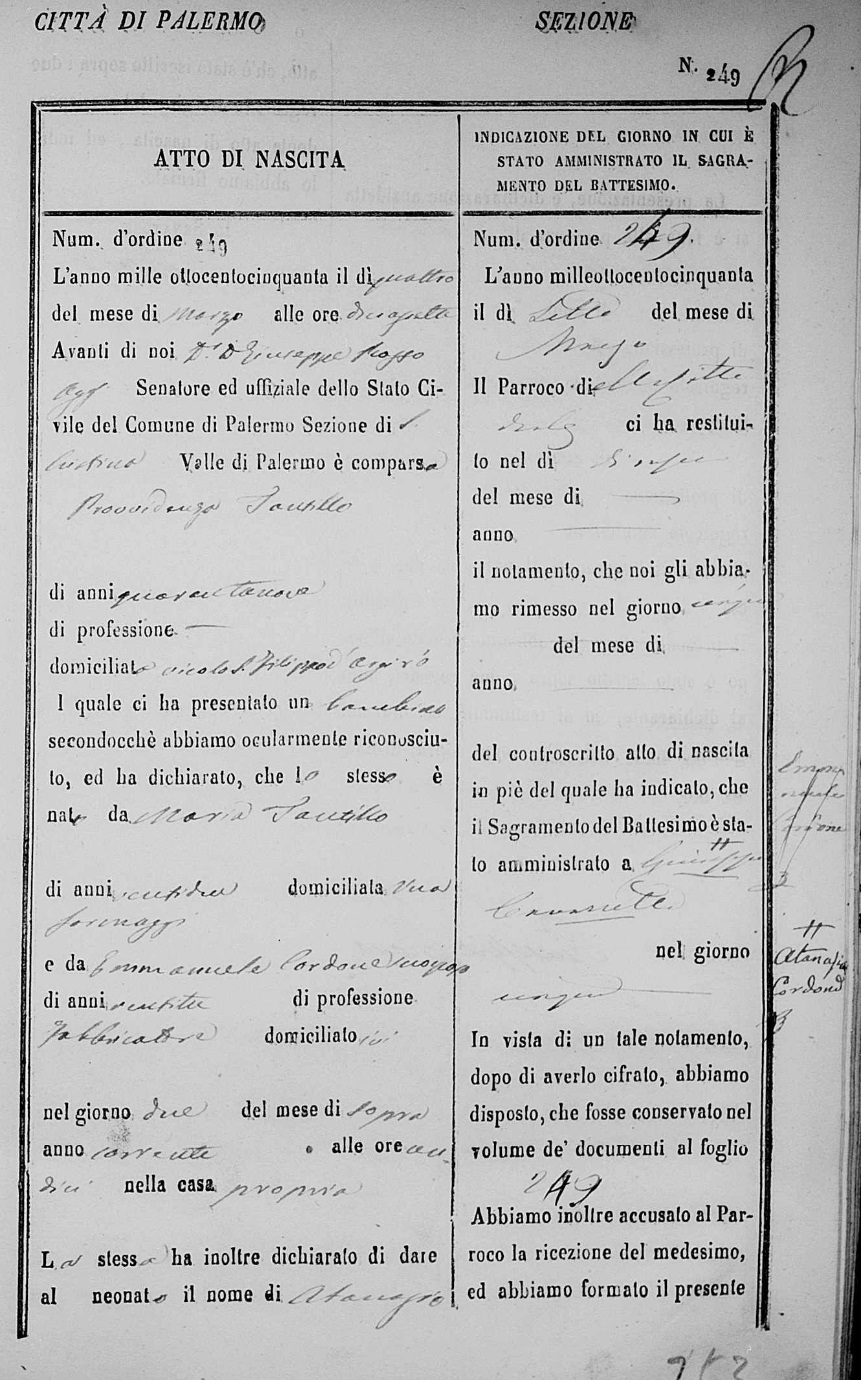 CITTÀ DI PALERMO SEZIONE
N. 249
ATTO DI NASCITA
Num. d'ordine 249
L'anno mille ottocentocinquanta il dì quattro
del mese di Marzo alle ore
Avanti di noi D. D Giuseppe
Senatore ed uffiziale dello Stato Ci-
vile del Comune di Palermo Sezione di S.
Cristina Valle di Palermo è comparsa
Provvidenza Santillo
di anni quarantanove
di professione —
domiciliata vicolo S. Filippo d'Argirò
l quale ci ha presentato un bambino
secondocchè abbiamo ocularmente riconosciu-
to, ed ha dichiarato, che lo stesso è
nato da Maria Santillo
di anni ventidue domiciliata via
formaggi
e da Emmanuele Cordone suo sposo
di anni di professione
Fabbricatore domiciliato ivi
nel giorno due del mese di sopra
anno corrente alle ore un-
dici nella casa propria
La stessa ha inoltre dichiarato di dare
al neonato il nome di Atanagio
INDICAZIONE DEL GIORNO IN CUI È
STATO AMMINISTRATO IL SAGRA-
MENTO DEL BATTESIMO.
Num. d'ordine 249
L'anno milleottocentocinquanta
il dì Sette del mese di
Marzo
Il Parroco di
ci ha restitui-
to nel dì cinque
del mese di —
anno —
il notamento, che noi gli abbia-
mo rimesso nel giorno cinque
del mese di
anno —
del controscritto atto di nascita
in piè del quale ha indicato, che
il Sagramento del Battesimo è sta-
to amministrato a Giuseppe
nel giorno
cinque —
In vista di un tale notamento,
dopo di averlo cifrato, abbiamo
disposto, che fosse conservato nel
volume de' documenti al foglio
249
Abbiamo inoltre accusato al Par-
roco la ricezione del medesimo,
ed abbiamo formato il presente
Atanagio
Cordone